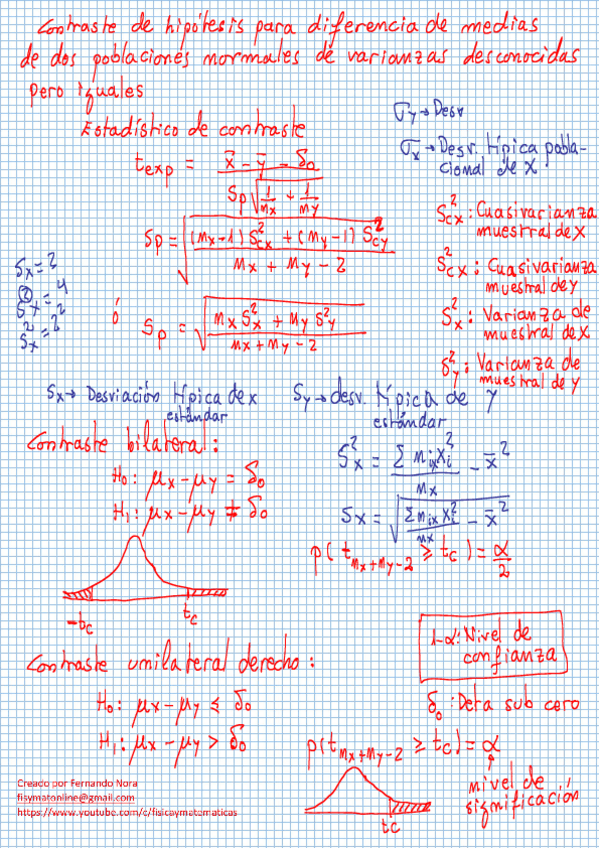 Contraste de hipótesis para diferencia de medias
de dos poblaciones normales de varianzas desconocidas
pero iguales
Estadístico de contraste
σy → Desv
σx → Desv. típica pobla-
cional de x
t_exp = (x̄ - ȳ - δ₀) / (Sp √(1/mx + 1/my))
Sp = √(((mx-1) S²cx + (my-1) S²cy) / (mx + my - 2))
S²cx: Cuasivarianza
muestral de x
S²cx: Cuasivarianza
muestral de y
Sx = 2
S²x = 4
S²x = 2²
ó Sp = √((mx S²x + my S²y) / (mx + my - 2))
S²x: Varianza de
muestral de x
S²y: Varianza de
muestral de y
Sx → Desviación típica de x
estándar
Sy → desv. típica de y
estándar
Contraste bilateral:
H₀: μx - μy = δ₀
H₁: μx - μy ≠ δ₀
S²x = Σ mix xi² / mx - x̄²
Sx = √(Σ mix xi² / mx - x̄²)
p(t_mx+my-2 ≥ tc) = α/2
-tc tc
1-α: Nivel de
confianza
Contraste unilateral derecho:
H₀: μx - μy ≤ δ₀
H₁: μx - μy > δ₀
δ₀: Deta sub cero
p(t_mx+my-2 ≥ tc) = α
nivel de
significación
tc
Creado por Fernando Nora
fisymatonline@gmail.com
https://www.youtube.com/c/fisicaymatematicas